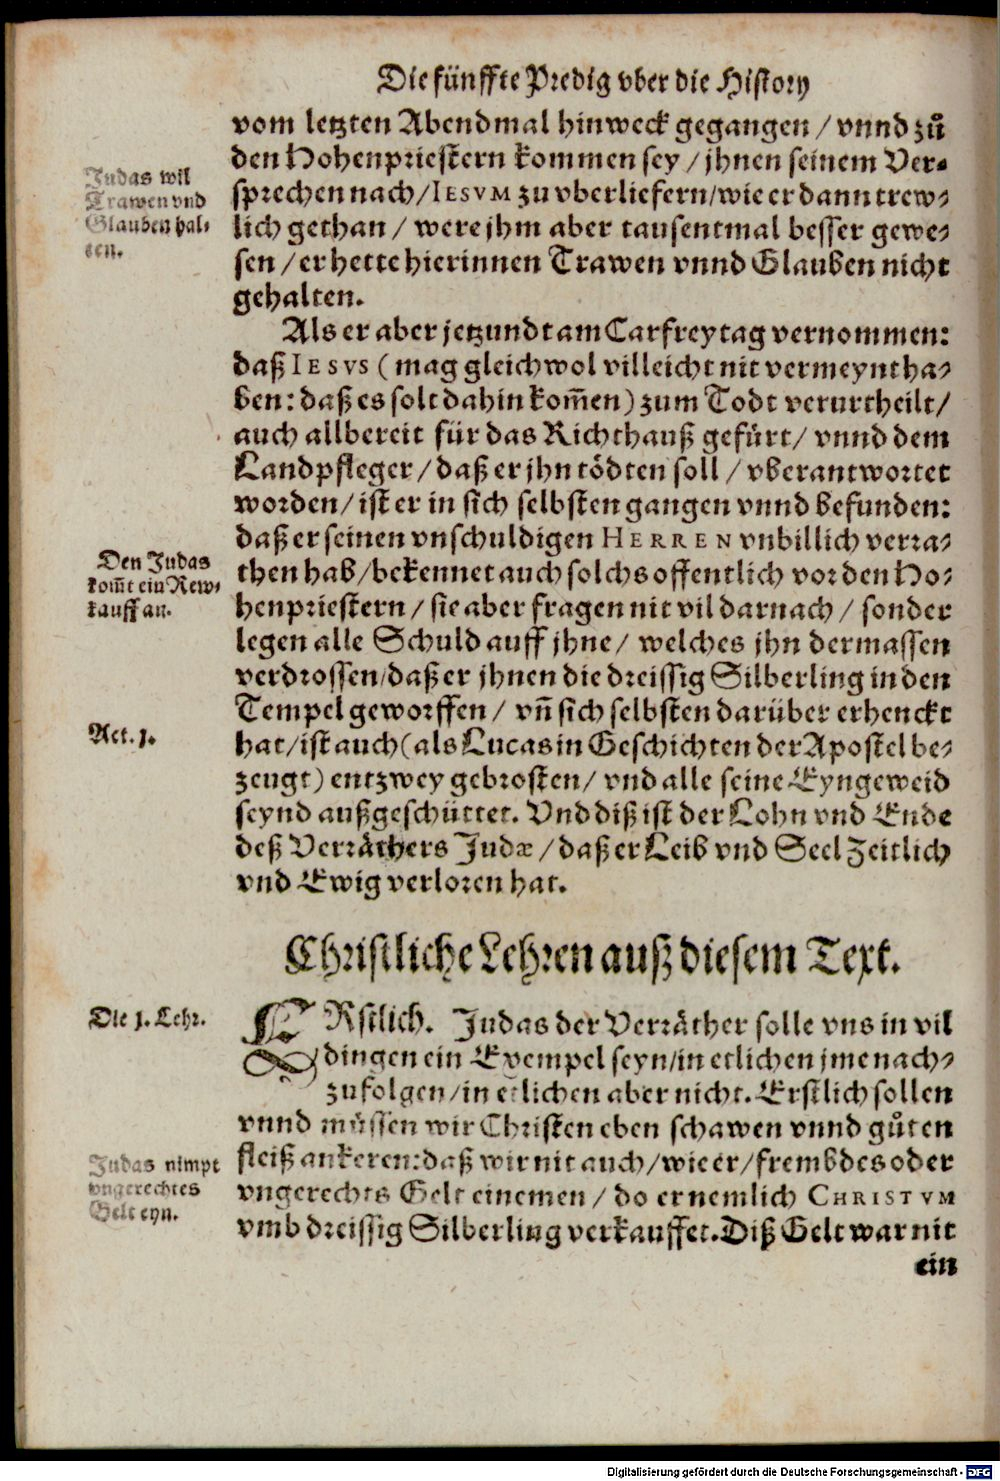 Die fünffte Predig vber die History
vom letzten Abendmal hinweck gegangen / vnnd zů
den Hohenpriestern kommen sey / jhnen seinem Ver-
sprechen nach / IESVM zu vberliefern / wie er dann trew-
lich gethan / were jhm aber tausentmal besser gewe-
sen / er hette hierinnen Trawen vnnd Glauben nicht
gehalten.
Judas wil
Trawen vnd
Glauben hal-
ten.
Als er aber jetzundt am Carfreytag vernommen:
daß IESVS (mag gleichwol villeicht nit vermeynt ha-
ben: daß es solt dahin kom̃en) zum Todt verurtheilt /
auch allbereit für das Richthauß gefürt / vnnd dem
Landpfleger / daß er jhn tödten soll / vberantwortet
worden / ist er in sich selbsten gangen vnnd befunden:
daß er seinen vnschuldigen HERREN vnbillich verra-
then hab / bekennet auch solchs offentlich vor den Ho-
henpriestern / sie aber fragen nit vil darnach / sonder
legen alle Schuld auff jhne / welches jhn dermassen
verdrossen / daß er jhnen die dreissig Silberling in den
Tempel geworffen / vñ sich selbsten darüber erhenckt
hat / ist auch (als Lucas in Geschichten der Apostel be-
zeugt) entzwey gebrosten / vnd alle seine Eyngeweid
seynd außgeschüttet. Vnd diß ist der Lohn vnd Ende
deß Verräthers Judæ / daß er Leib vnd Seel Zeitlich
vnd Ewig verloren hat.
Den Judas
kom̃t ein Rew-
kauff an.
Act. 1.
Christliche Lehren auß diesem Text.
Die 1. Lehr.
ERstlich. Judas der Verräther solle vns in vil
dingen ein Exempel seyn / in etlichen jme nach-
zufolgen / in etlichen aber nicht. Erstlich sollen
vnnd müssen wir Christen eben schawen vnnd gůten
fleiß ankeren: daß wir nit auch / wie er / frembdes oder
vngerechts Gelt einemen / do er nemlich CHRISTVM
vmb dreissig Silberling verkauffet. Diß Gelt war nit
Judas nimpt
vngerechtes
Gelt eyn.
ein
Digitalisierung gefördert durch die Deutsche Forschungsgemeinschaft - DFG